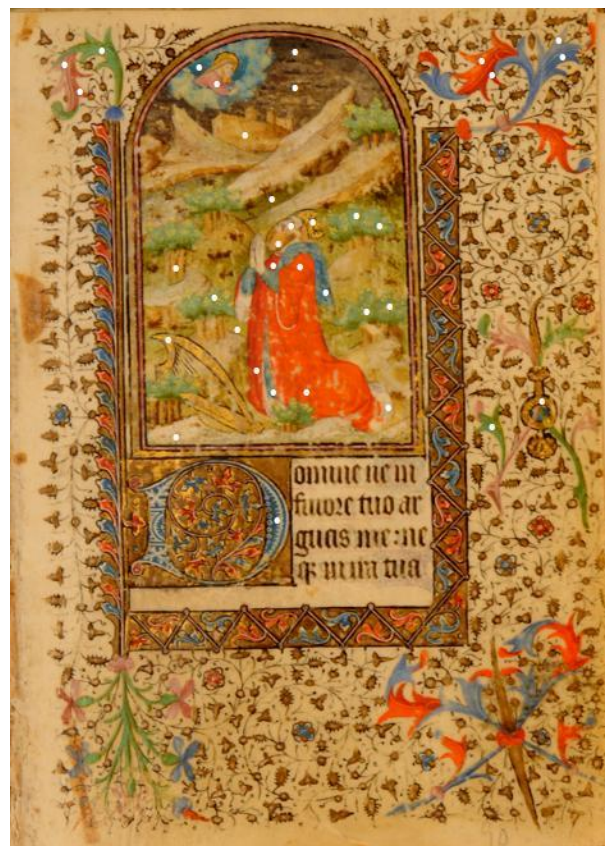 Domine ne in
furore tuo ar
guas me : ne
q̄ in ira tua